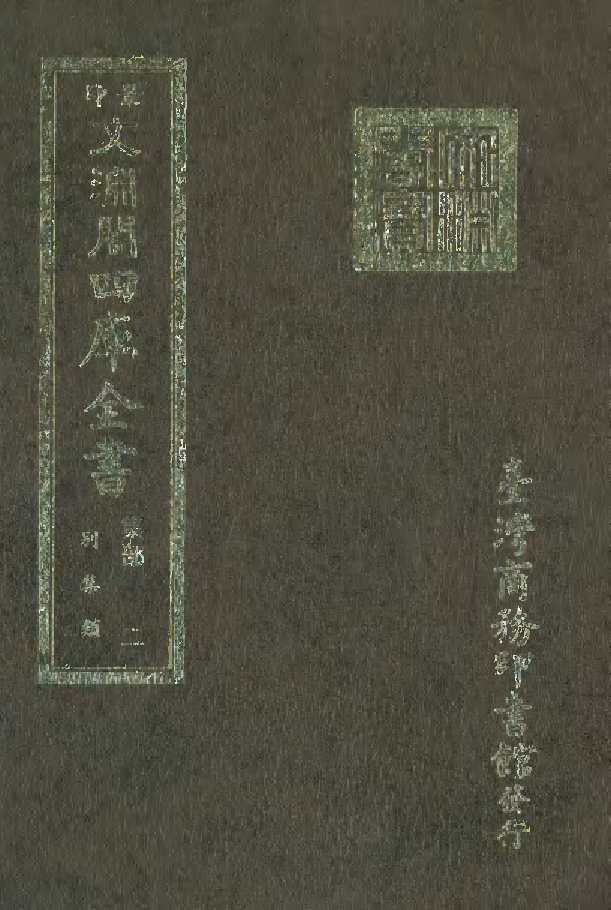 景印
文淵閣四庫全書
集部 二
別集類
文淵閣寶
臺灣商務印書館發行